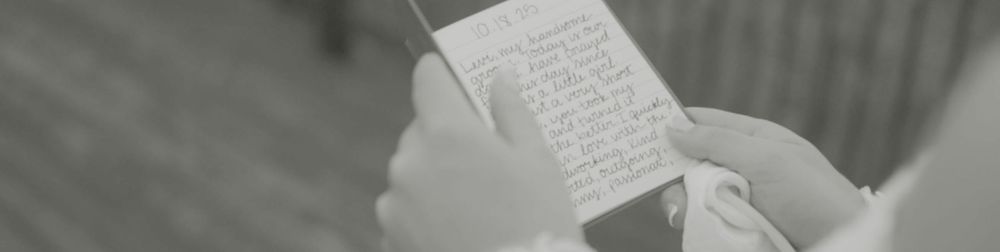 10.18.25
Levi, my handsome
groom. Today is our
day I have prayed
this day since
is a little girl
just a very short
, you took my
and turned it
the better. I quickly
in love with the
dworking, kind
rted, outgoing,
nny, passionate,